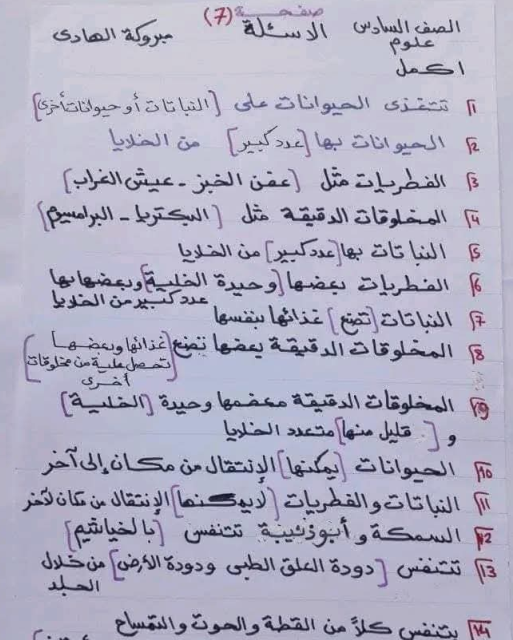 صفحة (7)
الصف السادس الاسئلة مبروكة الهادى
علوم
اكمل
1 تتغذى الحيوانات على [النباتات أو حيوانات أخرى]
2 الحيوانات بها [عدد كبير] من الخلايا
3 الفطريات مثل [عفن الخبز - عيش الغراب]
4 المخلوقات الدقيقة مثل [البكتريا - البراميسوم]
5 النباتات بها [عدد كبير] من الخلايا
6 الفطريات بعضها [وحيدة الخلية] وبعضها بها
عدد كبير من الخلايا
7 النباتات [تصنع] غذائها بنفسها
8 المخلوقات الدقيقة بعضها تصنع [غذائها وبعضها
تحصل علية من مخلوقات
أخرى]
9 المخلوقات الدقيقة معظمها وحيدة [الخلية]
و [قليل منها] متعدد الخلايا
10 الحيوانات [يمكنها] الإنتقال من مكان إلى آخر
11 النباتات والفطريات [لايمكنها] الإنتقال من مكان لآخر
12 السمكة وأبوذنيبة تتنفس [بالخياشيم]
13 تتنفس [دودة العلق الطبى ودودة الأرض] من خلال
الجلد
14 يتنفس كلاً من القطة والحوت والتمساح